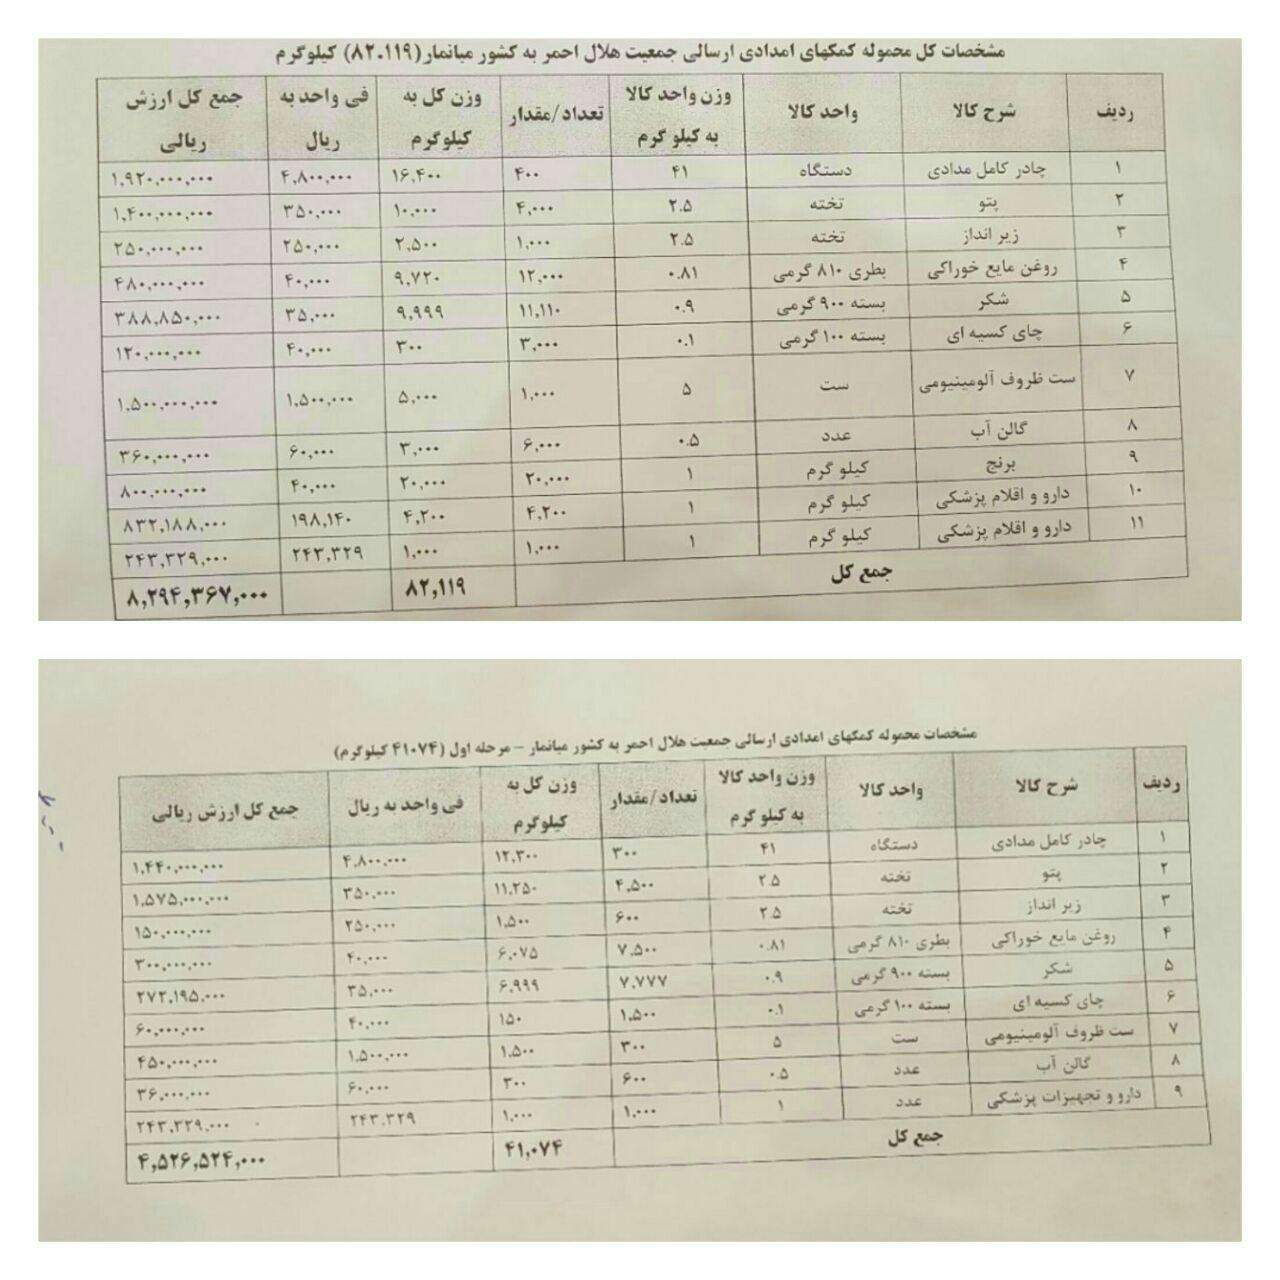 مشخصات کل محموله کمکهای امدادی ارسالی جمعیت هلال احمر به کشور میانمار (۸۲.۱۱۹) کیلوگرم
ردیف شرح کالا واحد کالا وزن واحد کالا به کیلو گرم تعداد/مقدار وزن کل به کیلوگرم فی واحد به ریال جمع کل ارزش ریالی
۱ چادر کامل مدادی دستگاه ۴۱ ۴۰۰ ۱۶,۴۰۰ ۴,۸۰۰,۰۰۰ ۱,۹۲۰,۰۰۰,۰۰۰
۲ پتو تخته ۲.۵ ۴,۰۰۰ ۱۰,۰۰۰ ۳۵۰,۰۰۰ ۱,۴۰۰,۰۰۰,۰۰۰
۳ زیر انداز تخته ۲.۵ ۱,۰۰۰ ۲,۵۰۰ ۲۵۰,۰۰۰ ۲۵۰,۰۰۰,۰۰۰
۴ روغن مایع خوراکی بطری ۸۱۰ گرمی ۰.۸۱ ۱۲,۰۰۰ ۹,۷۲۰ ۴۰,۰۰۰ ۴۸۰,۰۰۰,۰۰۰
۵ شکر بسته ۹۰۰ گرمی ۰.۹ ۱۱,۱۱۰ ۹,۹۹۹ ۳۵,۰۰۰ ۳۸۸,۸۵۰,۰۰۰
۶ چای کسیه ای بسته ۱۰۰ گرمی ۰.۱ ۳,۰۰۰ ۳۰۰ ۴۰,۰۰۰ ۱۲۰,۰۰۰,۰۰۰
۷ ست ظروف آلومینیومی ست ۵ ۱,۰۰۰ ۵,۰۰۰ ۱,۵۰۰,۰۰۰ ۱,۵۰۰,۰۰۰,۰۰۰
۸ گالن آب عدد ۰.۵ ۶,۰۰۰ ۳,۰۰۰ ۶۰,۰۰۰ ۳۶۰,۰۰۰,۰۰۰
۹ برنج کیلو گرم ۱ ۲۰,۰۰۰ ۲۰,۰۰۰ ۴۰,۰۰۰ ۸۰۰,۰۰۰,۰۰۰
۱۰ دارو و اقلام پزشکی کیلو گرم ۱ ۴,۲۰۰ ۴,۲۰۰ ۱۹۸,۱۴۰ ۸۳۲,۱۸۸,۰۰۰
۱۱ دارو و اقلام پزشکی کیلو گرم ۱ ۱,۰۰۰ ۱,۰۰۰ ۲۴۳,۳۲۹ ۲۴۳,۳۲۹,۰۰۰
جمع کل ۸۲,۱۱۹ ۸,۲۹۴,۳۶۷,۰۰۰
مشخصات محموله کمکهای امدادی ارسالی جمعیت هلال احمر به کشور میانمار – مرحله اول (۴۱۰۷۴ کیلوگرم)
ردیف شرح کالا واحد کالا وزن واحد کالا به کیلو گرم تعداد/مقدار وزن کل به کیلوگرم فی واحد به ریال جمع کل ارزش ریالی
۱ چادر کامل مدادی دستگاه ۴۱ ۳۰۰ ۱۲,۳۰۰ ۴,۸۰۰,۰۰۰ ۱,۴۴۰,۰۰۰,۰۰۰
۲ پتو تخته ۲.۵ ۴,۵۰۰ ۱۱,۲۵۰ ۳۵۰,۰۰۰ ۱,۵۷۵,۰۰۰,۰۰۰
۳ زیر انداز تخته ۲.۵ ۶۰۰ ۱,۵۰۰ ۲۵۰,۰۰۰ ۱۵۰,۰۰۰,۰۰۰
۴ روغن مایع خوراکی بطری ۸۱۰ گرمی ۰.۸۱ ۷,۵۰۰ ۶,۰۷۵ ۴۰,۰۰۰ ۳۰۰,۰۰۰,۰۰۰
۵ شکر بسته ۹۰۰ گرمی ۰.۹ ۷,۷۷۷ ۶,۹۹۹ ۳۵,۰۰۰ ۲۷۲,۱۹۵,۰۰۰
۶ چای کسیه ای بسته ۱۰۰ گرمی ۰.۱ ۱,۵۰۰ ۱۵۰ ۴۰,۰۰۰ ۶۰,۰۰۰,۰۰۰
۷ ست ظروف آلومینیومی ست ۵ ۳۰۰ ۱,۵۰۰ ۱,۵۰۰,۰۰۰ ۴۵۰,۰۰۰,۰۰۰
۸ گالن آب عدد ۰.۵ ۶۰۰ ۳۰۰ ۶۰,۰۰۰ ۳۶,۰۰۰,۰۰۰
۹ دارو و تجهیزات پزشکی عدد ۱ ۱,۰۰۰ ۱,۰۰۰ ۲۴۳,۳۲۹ ۲۴۳,۳۲۹,۰۰۰
جمع کل ۴۱,۰۷۴ ۴,۵۲۶,۵۲۴,۰۰۰